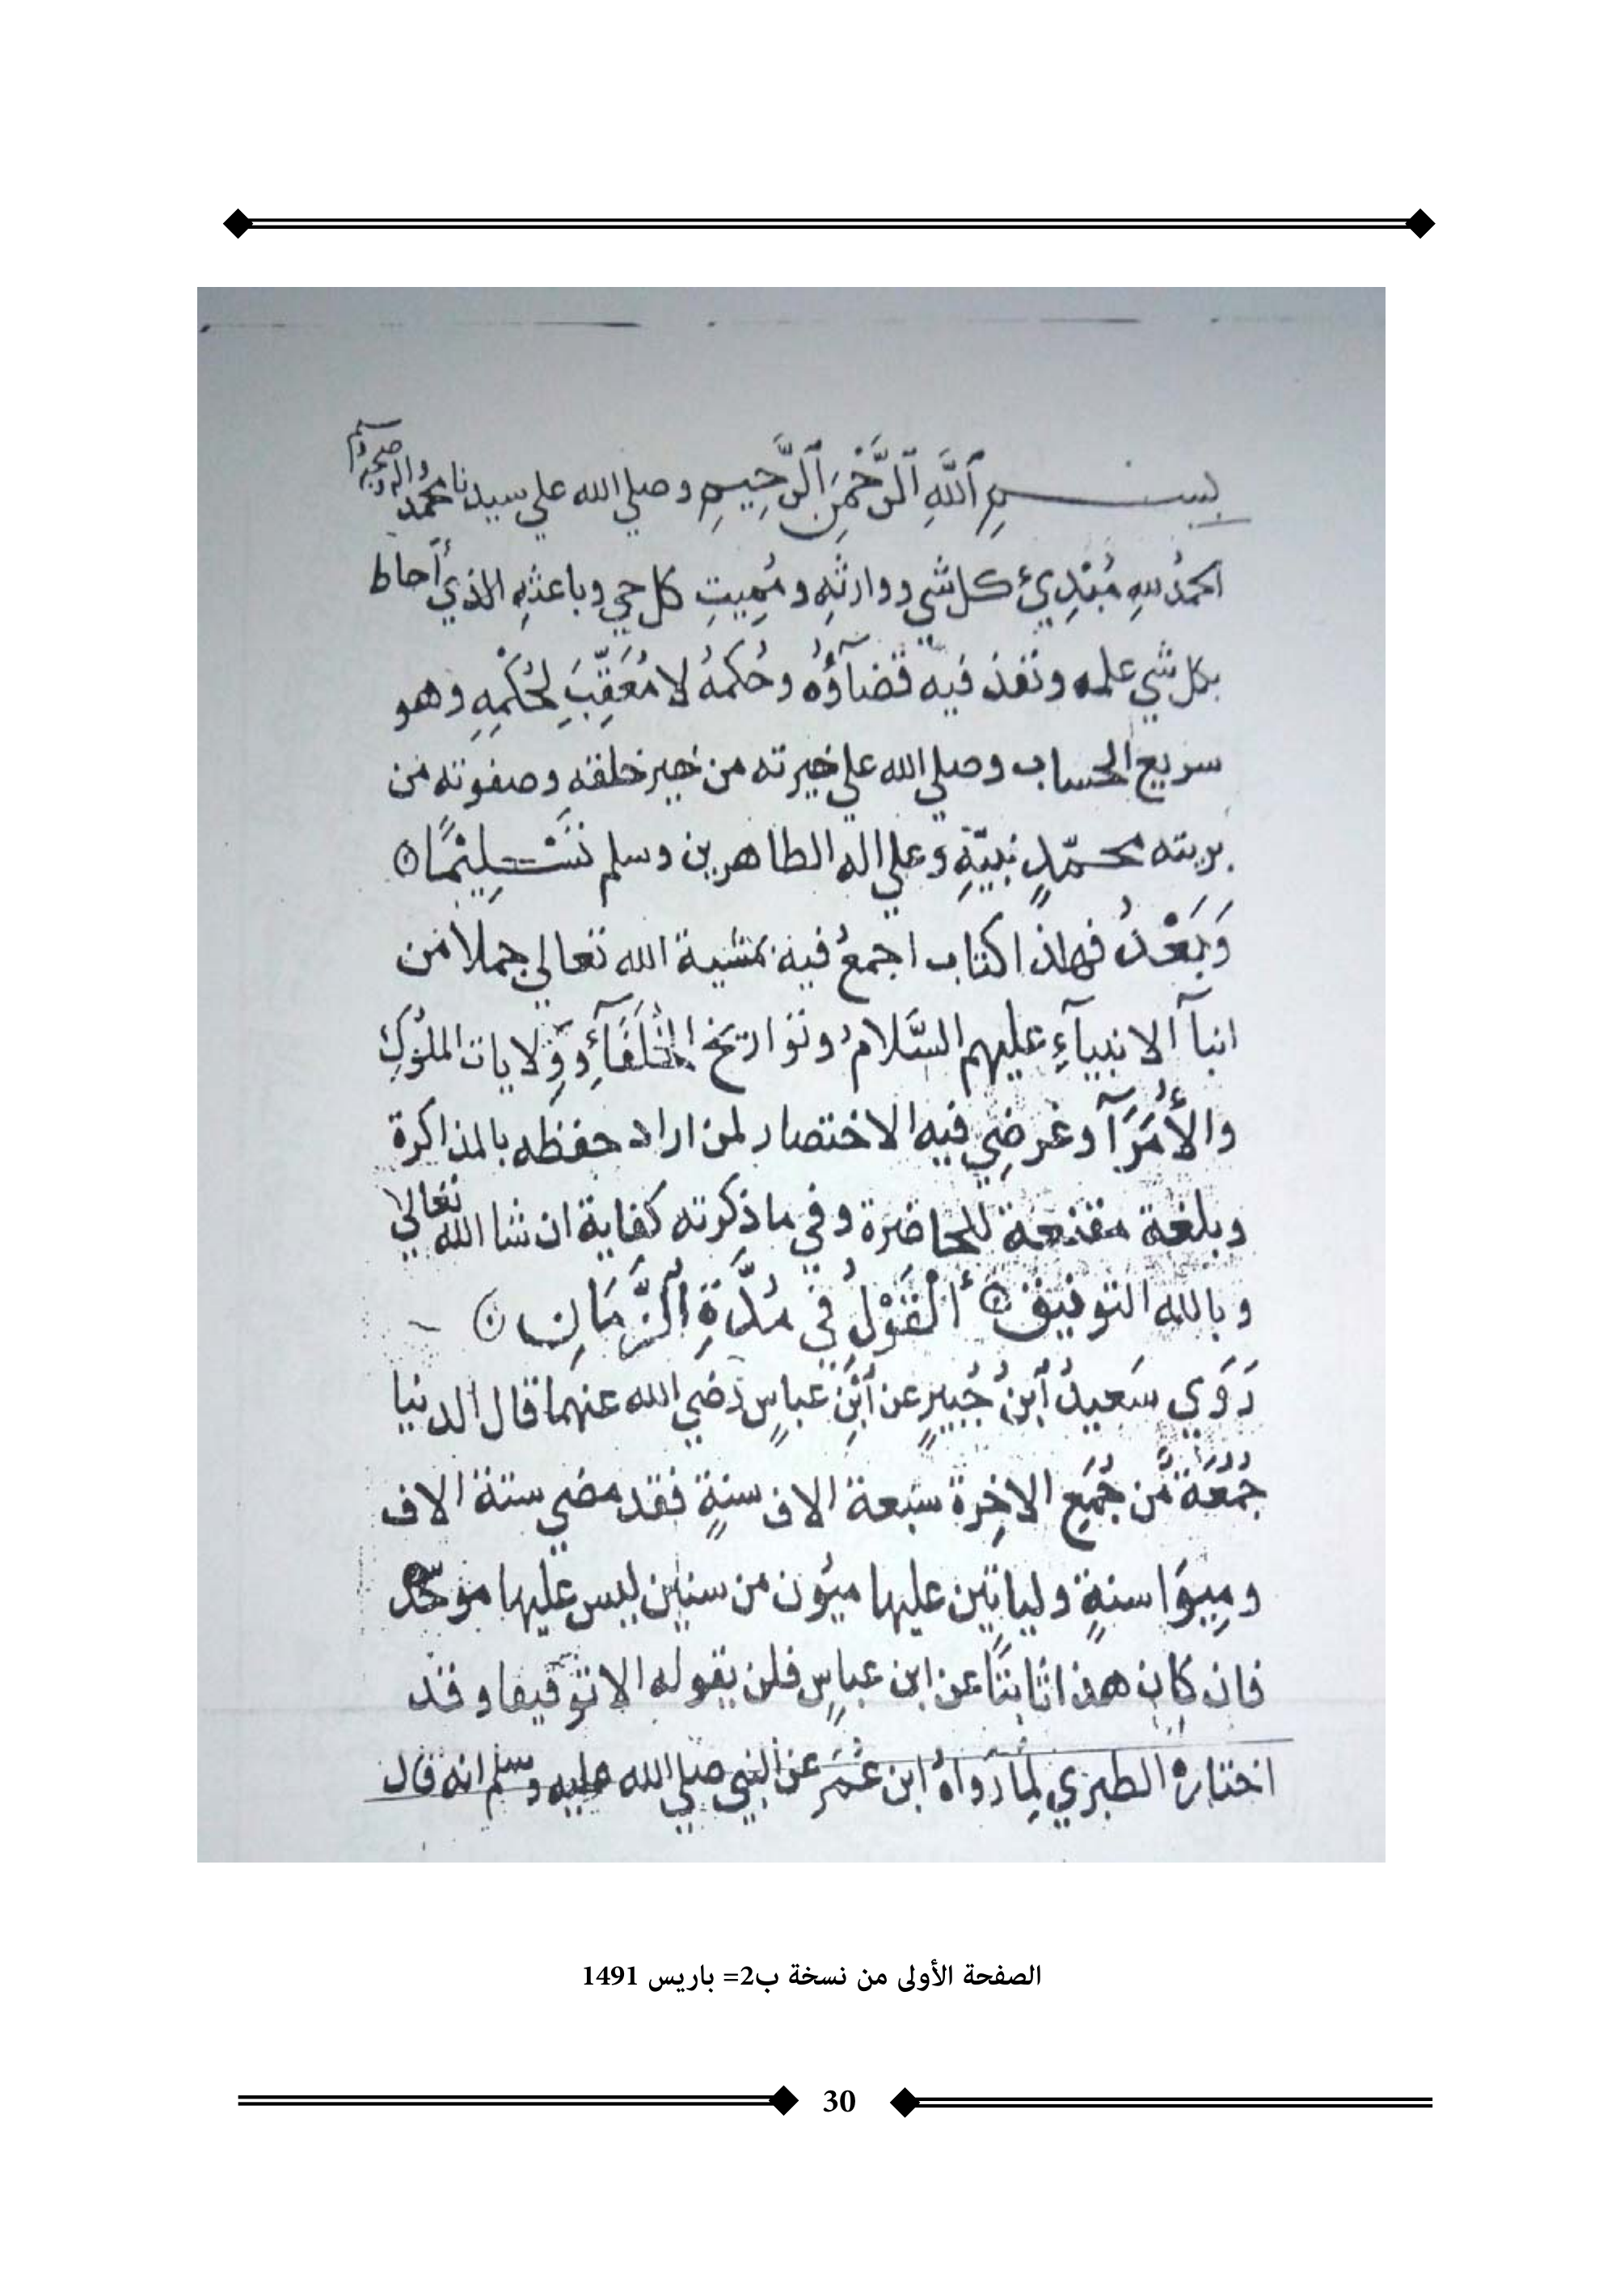 بســـــم ٱللَّهِ ٱلرَّحْمَنِ ٱلرَّحِيمِ وصلي الله علي سيدنا محمد واله وصحبه وسلم
الحمدُ للهِ مُبْتَدِيءِ كل شي ووارثِهِ ومُمِيتِ كل حي وباعثِهِ الذي أحاط
بكل شي علمه ونفذ فيه قضآؤُه وحُكمُهُ لا مُعَقِّبَ لحُكْمِهِ وهو
سريع الحساب وصلي الله علي خيرته من خير خلقه وصفوته من
بريته محمّدٍ نبيّهِ وعلي اله الطاهرين وسلم تَسْـلِيْمًا
وَبَعْدُ فهاذا كتاب اجمعُ فيه بمشية الله تعالي جملا من
انبآ الانبيآءِ عليهم السَّلامُ وتواريخ الخُلَفَآءِ ووِلايات الملُوكِ
والأُمَرَآ وغرضِي فيه الاختصار لمن اراد حفظه بالمذاكرة
وبلغة مقنعة للحاضرة وفي ما ذكرته كفاية ان شا الله تعالي
وبالله التوفيق أَلْقَوْلُ فِي مُدَّةِ ٱلزَّمَانِ
رَوَي سَعيدُ ٱبنُ جُبيرٍ عن ٱبْنِ عباسٍ رضي الله عنهما قال الدنيا
جُمُعَةٌ من جُمَعِ الاخِرة سبعة الاف سنةٍ فقد مضي ستة الاف
ومِيوَا سنةٍ ولياتين عليها ميُون من سنين ليس عليها موحّد
فان كان هذا ثابتًا عن ابن عباسٍ فلن يقوله الا توقيفا وقد
اختارهُ الطبري لِمَا رَوَاهُ ابن عُمَر عن النبي صلي الله عليه وسلم انه قال
الصفحة الأولى من نسخة ب2= باريس 1491
30